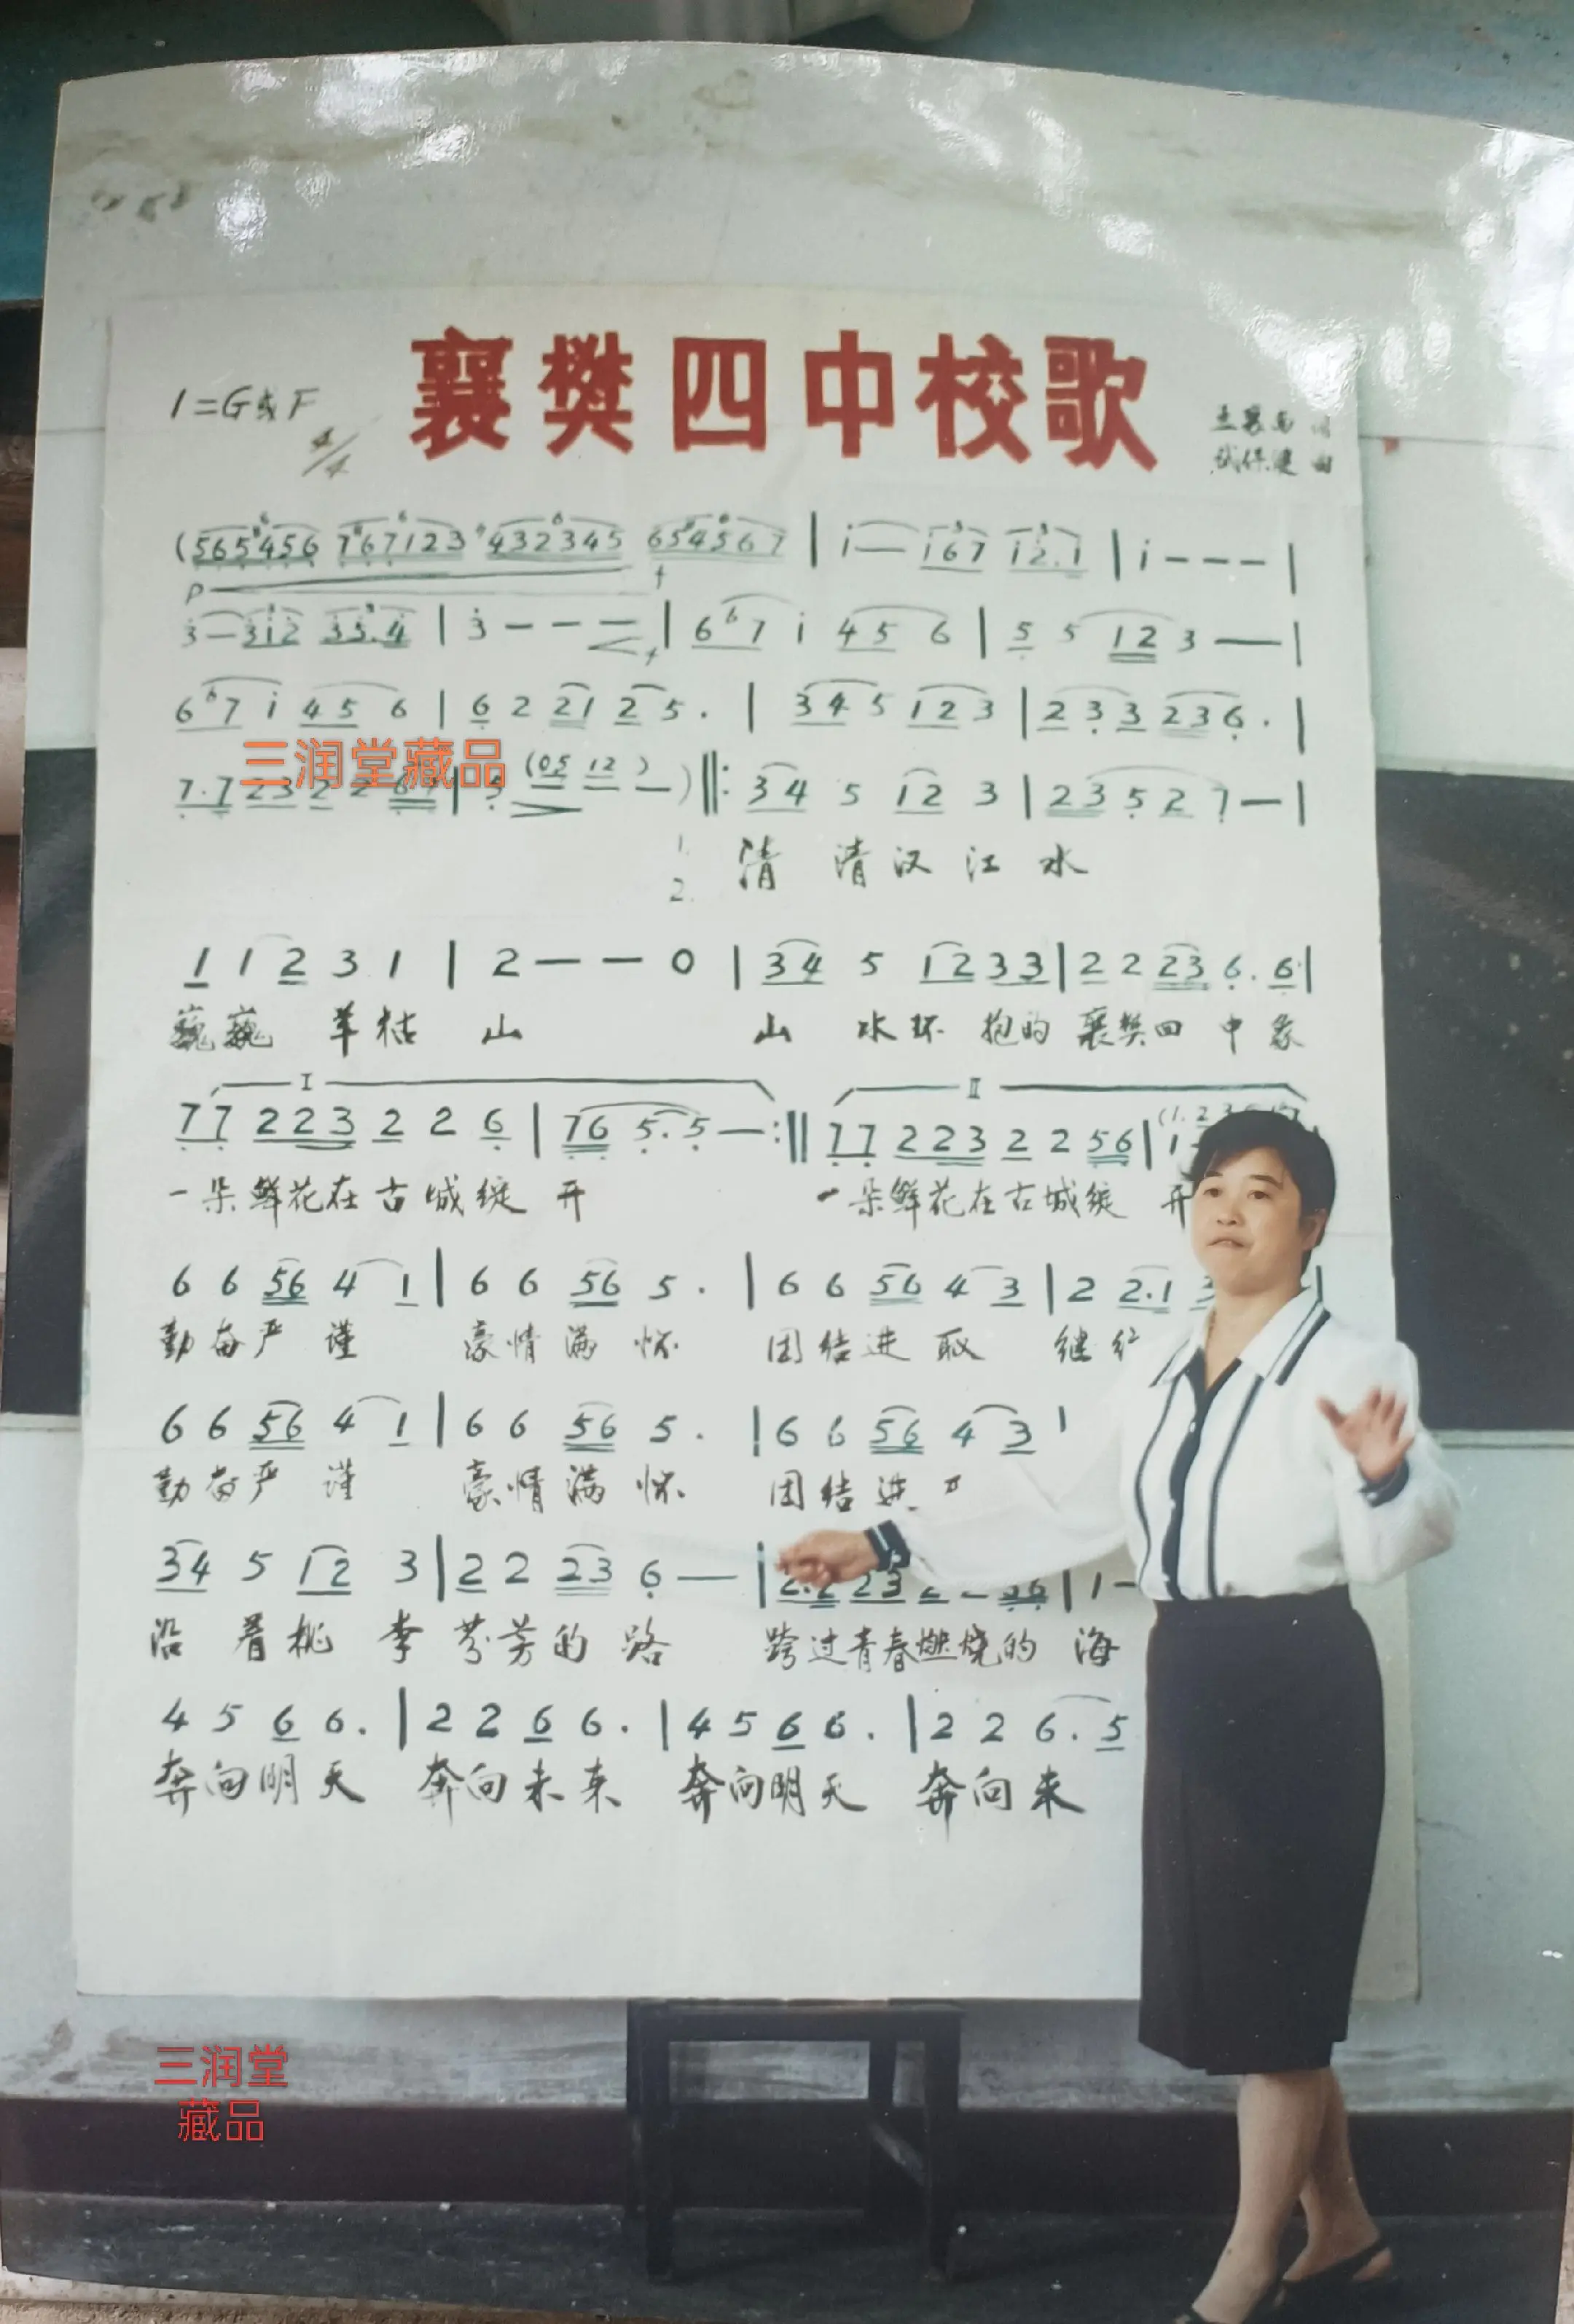 襄樊四中校歌
1=G或F 4/4
词
曲
(565456 767123 432345 656567 | i— i67 i2.i | i - - - |
p f
3—3i2 35.4 | 3 - - - | 67 i 45 6 | 5 5 12 3 — |
f
67 i 45 6 | 6 2 21 25. | 34 5 12 3 | 233 236. |
三润堂藏品
7.7 23 2 2 67 | 5 (05 12 ) — ) ‖: 34 5 12 3 | 23 5 2 7 — |
1. 清清汉江水
2.
1 1 2 3 1 | 2 — — 0 | 34 5 12 33 | 2 2 23 6. 6 |
巍巍羊祜山 山水环抱的襄樊四中象
I II
77 223 2 2 6 | 76 5. 5 — :‖ 77 223 2 2 56 | 1
一朵鲜花在古城绽开 一朵鲜花在古城绽开
6 6 56 4 1 | 6 6 56 5 . | 6 6 56 4 3 | 2 2.1 3
勤奋严谨 豪情满怀 团结进取 继
6 6 56 4 1 | 6 6 56 5 . | 6 6 56 4 3 |
勤奋严谨 豪情满怀 团结进
34 5 12 3 | 2 2 23 6 — | 2.2 23 2 — 56 | 1 -
沿着桃李芬芳的路 跨过青春燃烧的海
4 5 6 6. | 2 2 6 6. | 4 5 6 6. | 2 2 6. 5
奔向明天 奔向未来 奔向明天 奔向来
三润堂
藏品